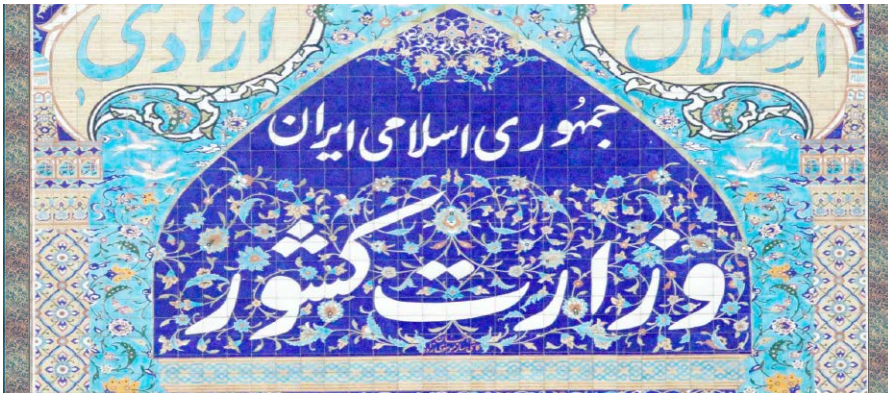 استقلال آزادی
جمهوری اسلامی ایران
وزارت کشور